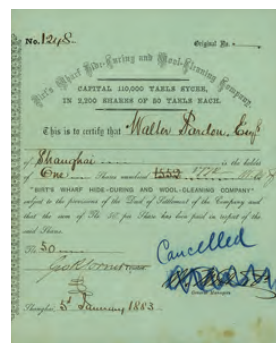 No. 1248.
Original No.
Birt's Wharf Hide-Curing and Wool-Cleaning Company.
CAPITAL 110,000 TAELS SYCEE,
IN 2,200 SHARES OF 50 TAELS EACH.
This is to certify that Walter Pardon, Esq
of Shanghai is the holder
of One Shares numbered
"BIRT'S WHARF HIDE-CURING AND WOOL-CLEANING COMPANY"
subject to the provisions of the Deed of Settlement of the Company and
that the sum of Tls. 50. per Share has been paid in respect of the
said Shares.
Tls. 50
Cancelled
General Managers
Shanghai, 5th January 1883